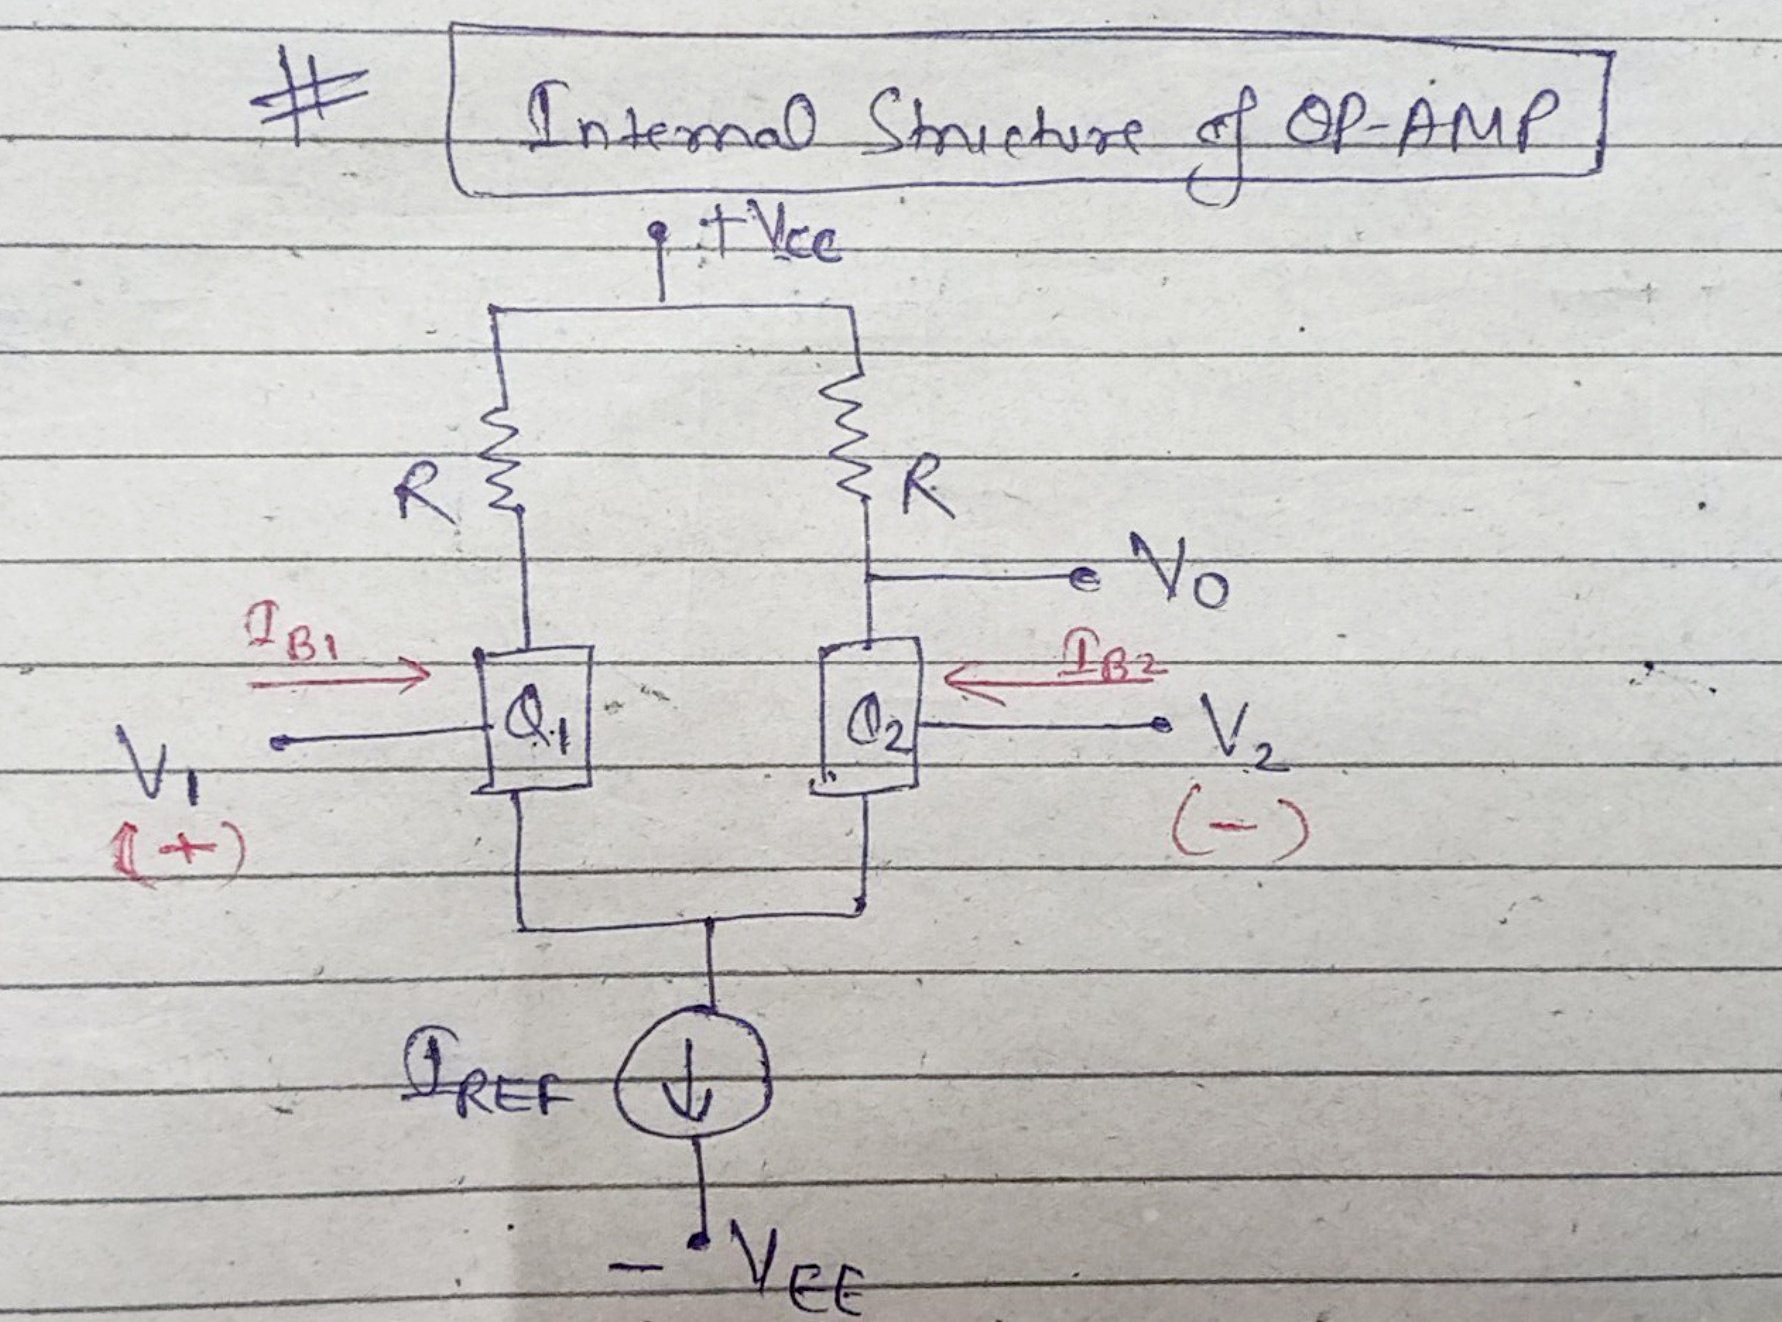 # Internal Structure of OP-AMP
+Vcc
R R
Vo
IB1 IB2
Q1 Q2
V1 V2
(+) (-)
IREF
- VEE